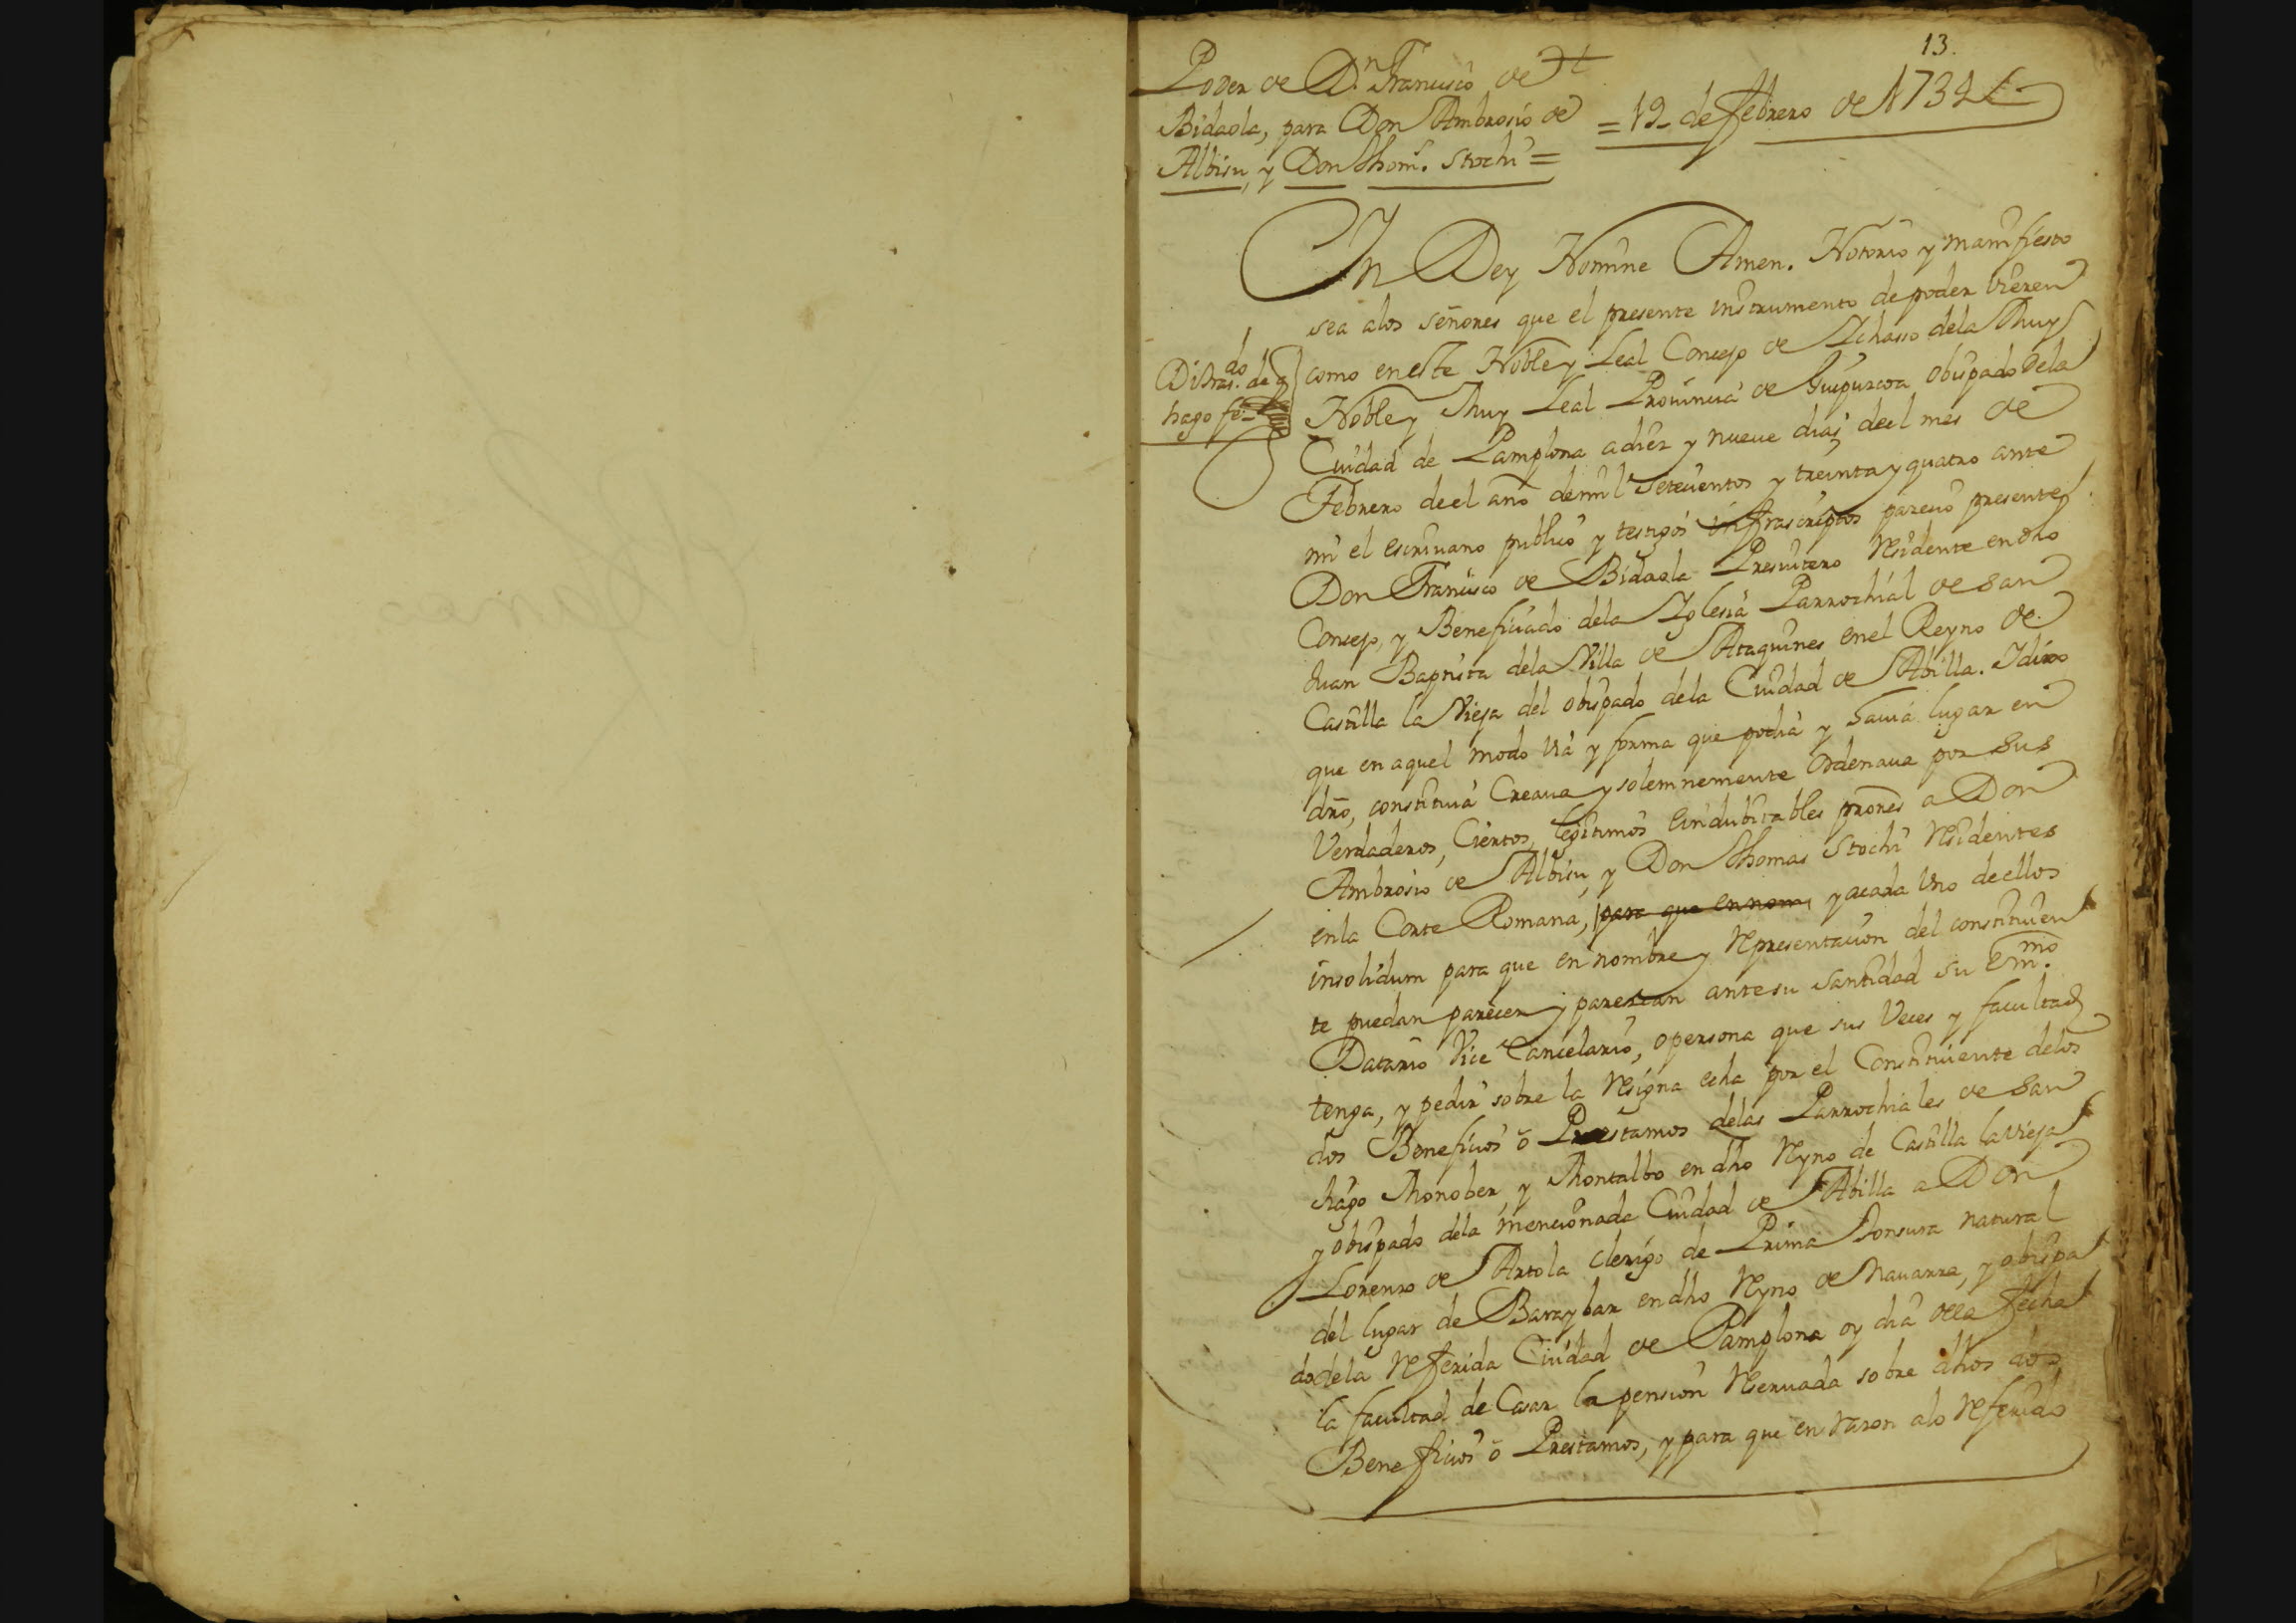 13.
Poder de Dn. Francisco de
Bidaola, para Don Ambrosio de
Albisu, y Don Thoms. Stochi =
= 19 de febrero de 1734
In Dey Nomine Amen. Notorio y manifiesto
sea alos señores que el presente instrumento de poder vieren
como en este Noble y Leal Concejo de Ichasso dela Muy
Noble y Muy Leal Prouincia de Guipuzcoa obispado dela
Ciudad de Pamplona a diez y nueue dias deel mes de
Febrero deel año de mil setecientos y treinta y quatro ante
mi el escriuano publico y testigos infrascriptos parecio presente
Don Francisco de Bidaola Presuitero Residente en dho
Concejo, y Beneficiado dela Iglesia Parrochial de San
Juan Baptista dela Villa de Ataquines en el Reyno de
Castilla la Vieja del obispado dela Ciudad de Abilla. I dixo
que en aquel modo via y forma que podia y hauia lugar en
dro, constituia Creaua y solemnemente ordenaua por sus
Verdaderos, Ciertos, legitimos e indubitables prores a Don
Ambrosio de Albisu, y Don Thomas Stochi Residentes
en la Corte Romana, para que en nom yacada Uno de ellos
insolidum para que en nombre y Representacion del constituien
te puedan parecer y parezcan ante su santidad su Emmo.
Datario Vice Cancelario, o persona que sus Veces y facultad
tenga, y pedir sobre la Resigna echa por el Constituiente delos
dos Beneficios ò Prestamos delas Parrochiales de San
tiago Monober, y Montalbo en dho Reyno de Castilla la vieja
y obispado dela mencionada Ciudad de Abilla a Don
Lorenzo de Artola clerigo de Prima Tonsura natural
del lugar de Baraybar en dho Reyno de Nauarra, y obispa
do dela Referida Ciudad de Pamplona oy dia dela fecha
la facultad de Casar la pension Reseruada sobre dhos dos
Beneficios ò Prestamos, y para que en razon alo Referido
do
Di tras. de q
hago fe =